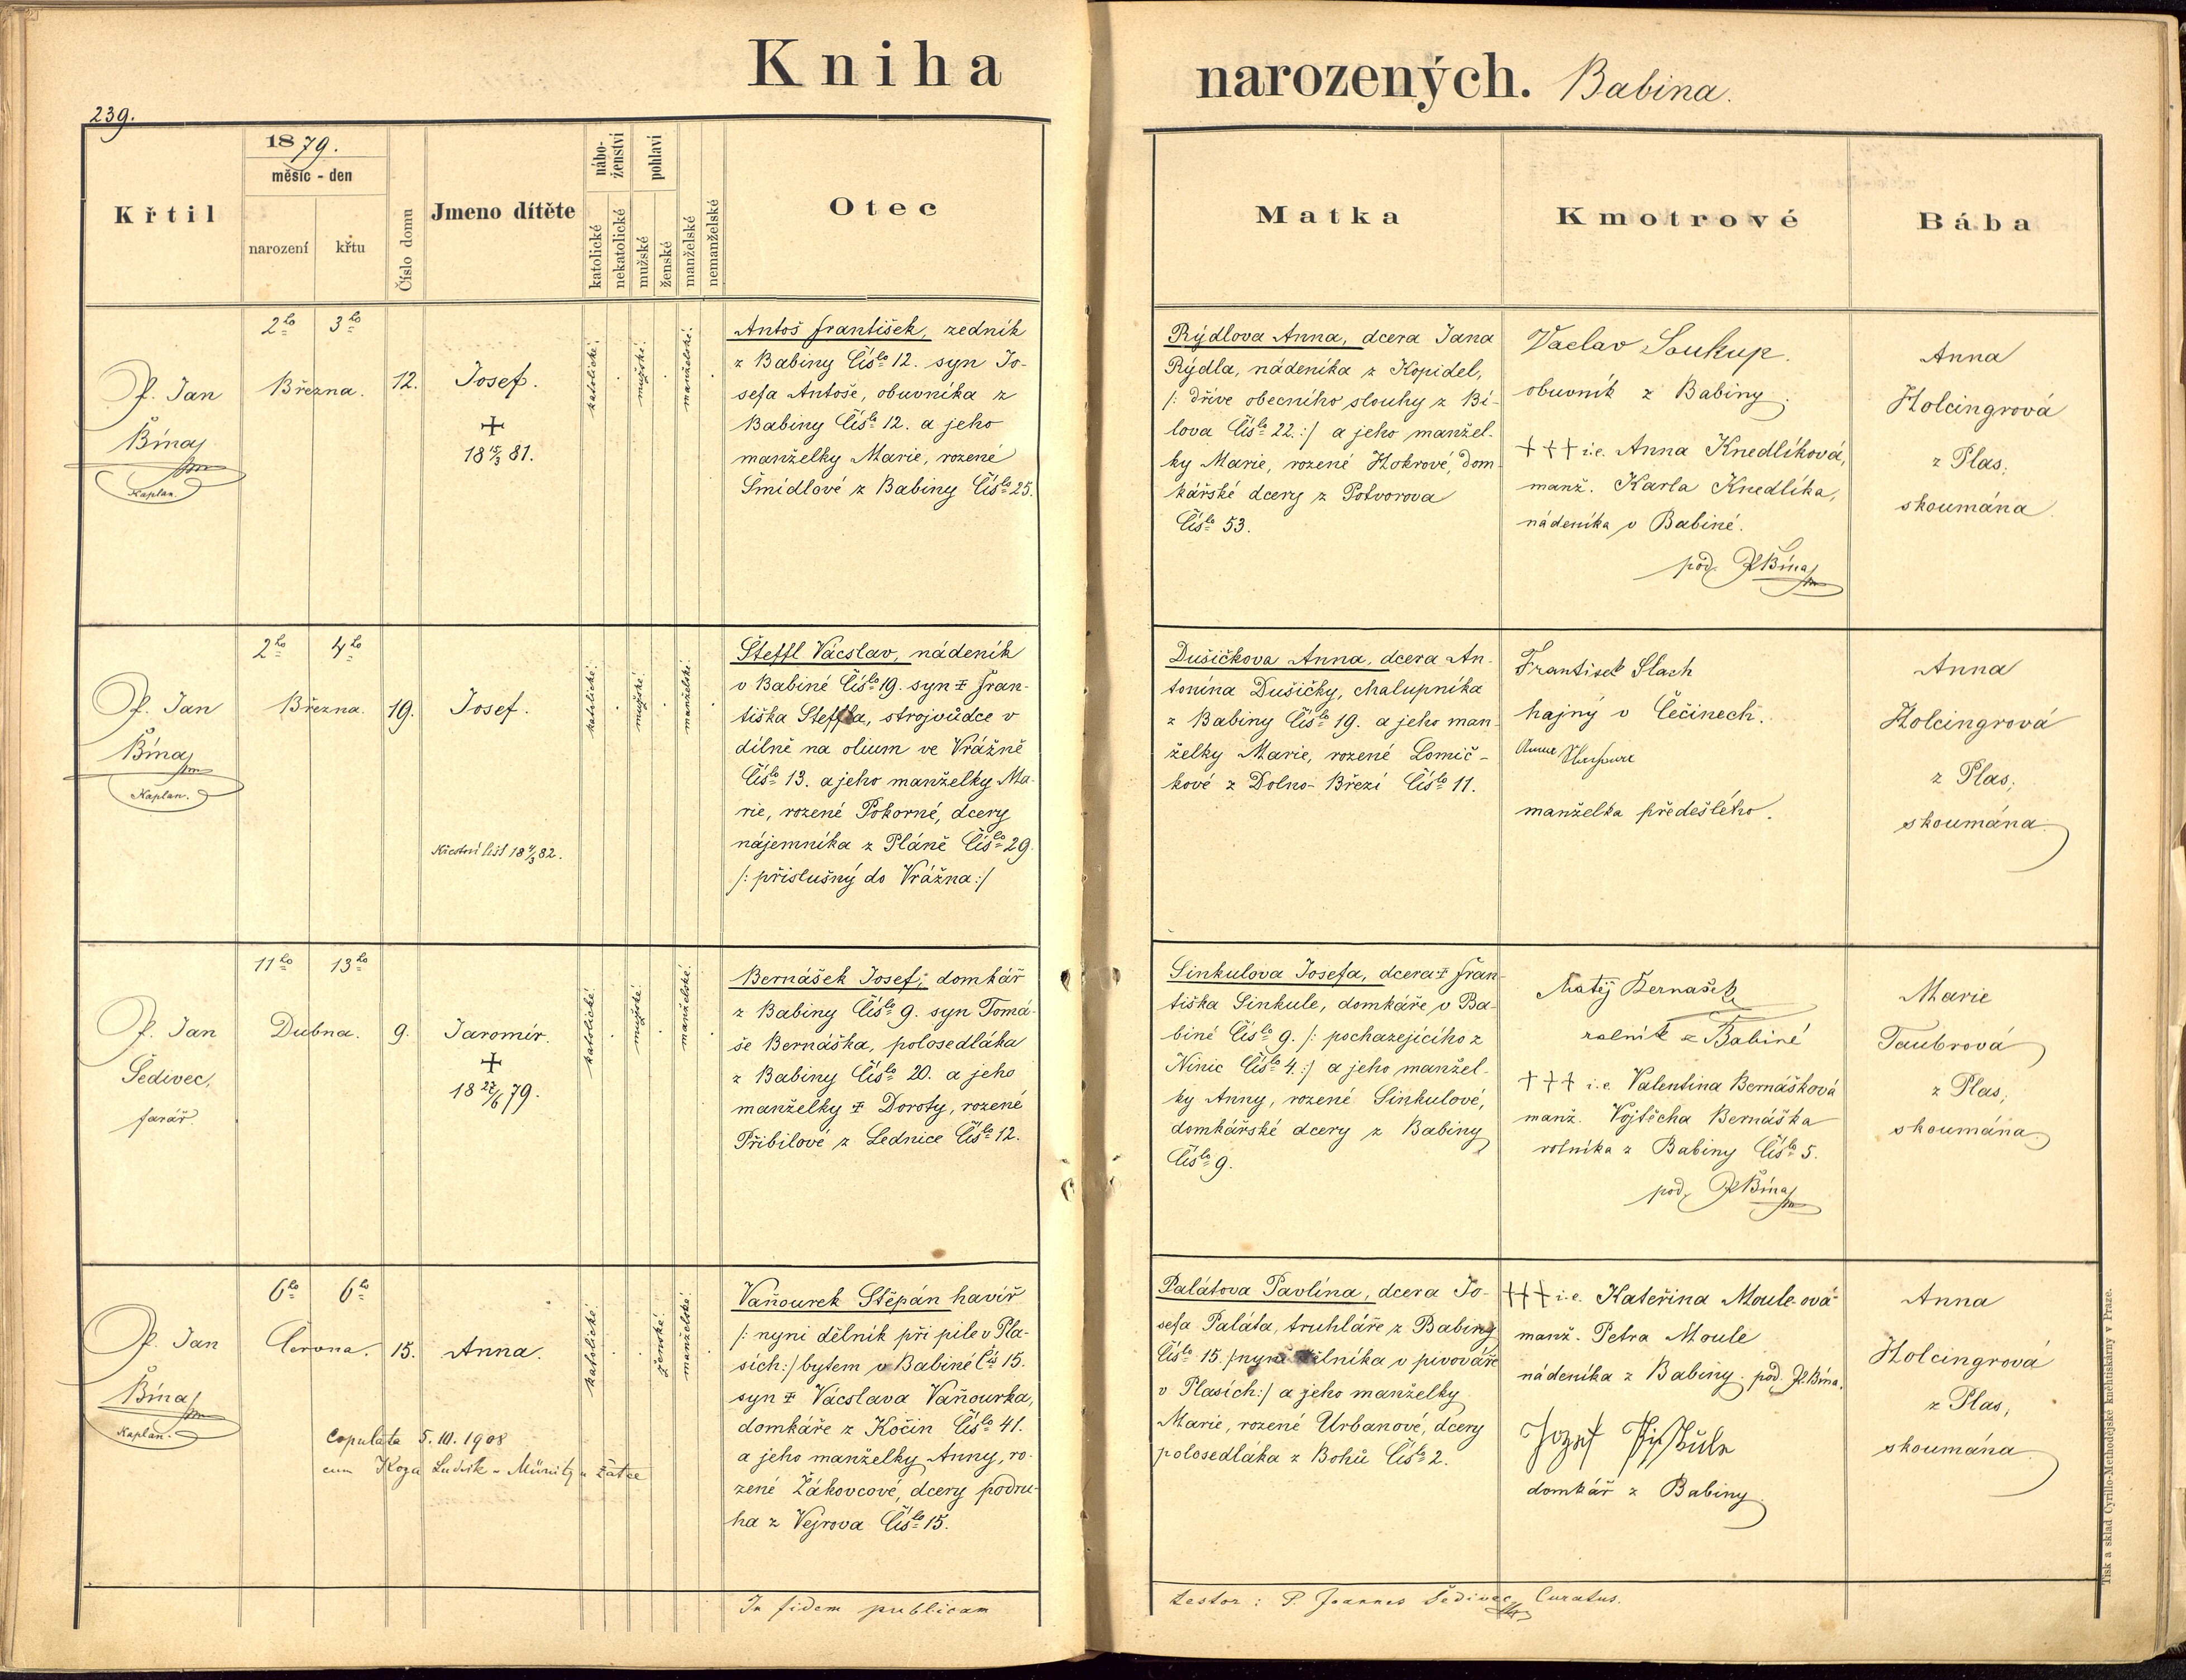 Kniha narozených. Babina.
239.
Křtil
1879.
měsíc - den
narození
křtu
Číslo domu
Jmeno dítěte
nábo-
ženství
katolické
nekatolické
pohlaví
mužské
ženské
manželské
nemanželské
Otec
Matka
Kmotrové
Bába
2ho 3ho
Března.
P. Jan
Bína
Kaplan.
12.
Josef.
+
18 15/3 81.
katolické.
mužské.
manželské.
Antoš František, zedník
z Babiny Čislo 12. syn Jo-
sefa Antoše, obuvníka z
Babiny Čislo 12. a jeho
manželky Marie, rozené
Šmídlové z Babiny Čislo 25.
Rýdlova Anna, dcera Jana
Rýdla, nádeníka z Kopidel,
/: dříve obecního slouhy z Bí-
lova Čislo 22. :/ a jeho manžel-
ky Marie, rozené Hokrové, dom-
kářské dcery z Potvorova
Čislo 53.
Vaclav Soukup.
obuvník z Babiny.
+++ i.e. Anna Knedlíková,
manž. Karla Knedlíka,
nádeníka v Babině.
pod. P. Bína
Anna
Holcingrová
z Plas,
skoumána
2ho 4ho
Března.
P. Jan
Bína
Kaplan.
19.
Josef.
Křestní list 18 4/3 82.
katolické.
mužské.
manželské.
Šteffl Vácslav, nádeník
v Babině Čislo 19. syn + Fran-
tiška Steffla, strojvůdce v
dílně na olium ve Vrážně
Čislo 13. a jeho manželky Ma-
rie, rozené Pokorné, dcery
nájemníka z Pláně Čislo 29.
/: příslušný do Vrážna :/
Dušičkova Anna, dcera An-
tonína Dušičky, chalupníka
z Babiny Čislo 19. a jeho man-
želky Marie, rozené Lomič-
kové z Dolno-Březí Čislo 11.
Frantisek Slach
hajný v Čečinech.
manželka předešlého.
Anna
Holcingrová
z Plas,
skoumána.
11ho 13ho
Dubna.
P. Jan
Šedivec,
farář.
9.
Jaromír.
+
18 27/6 79.
katolické.
mužské.
manželské.
Bernášek Josef, domkář
z Babiny Čislo 9. syn Tomá-
še Bernáška, polosedláka
z Babiny Čislo 20. a jeho
manželky + Doroty, rozené
Přibilové z Lednice Čislo 12.
Sinkulova Josefa, dcera + Fran-
tiška Sinkule, domkáře v Ba-
bině Čislo 9. /: pocházejícího z
Ninic Čislo 4. :/ a jeho manžel-
ky Anny, rozené Sinkulové,
domkářské dcery z Babiny
Čislo 9.
Matěj Bernašek
rolnik z Babiné
+++ i.e. Valentina Bernášková
manž. Vojtěcha Bernáška
rolníka z Babiny Čislo 5.
pod. P. Bína
Marie
Taubrová
z Plas,
skoumána.
6ho 6ho
Června.
P. Jan
Bína
Kaplan.
15.
Anna.
Copulata 5.10.1908
cum Koga Ludvik z Münitz u Žatce
katolické.
ženské.
manželské.
Vaňourek Štěpán havíř
/: nyní dělník při pile v Pla-
sích :/ bytem v Babině Čís 15.
syn + Vácslava Vaňourka,
domkáře z Kočin Čislo 41.
a jeho manželky Anny, ro-
zené Žákovcové, dcery podru-
ha z Vejrova Čislo 15.
Palátova Pavlína, dcera Jo-
sefa Paláta, truhláře z Babiny
Čislo 15. /: nyní dělníka v pivováře
v Plasích :/ a jeho manželky
Marie, rozené Urbanové, dcery
polosedláka z Bohů Čislo 2.
+++ i.e. Kateřina Mouleová
manž. Petra Moule
nádeníka z Babiny. pod. P. Bína.
domkář z Babiny
Anna
Holcingrová
z Plas,
skoumána
In fidem publicam testor: P. Joannes Šedivec, Curatus.
Tisk a sklad Cyrillo-Methodějské knihtiskárny v Praze.